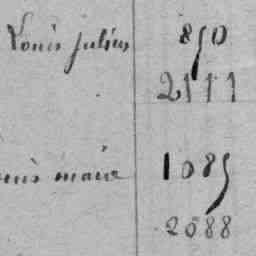 Louis julien 850
2111
marie 1085
2088